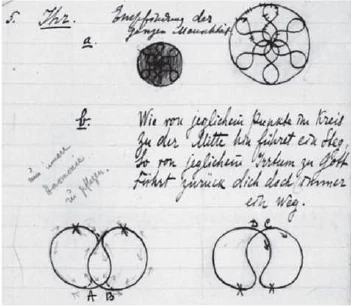 5. Ihr. Empfindung der
ganzen Mannschaft
a.
b. Wie von jeglichem Punkte im Kreis
Zu der Mitte hin führet ein Steg,
So von jeglichem Irrtum zu Gott
Führt zurück dich doch immer
ein Weg.
um
Harmonie
zu pflegen.
A B
D C